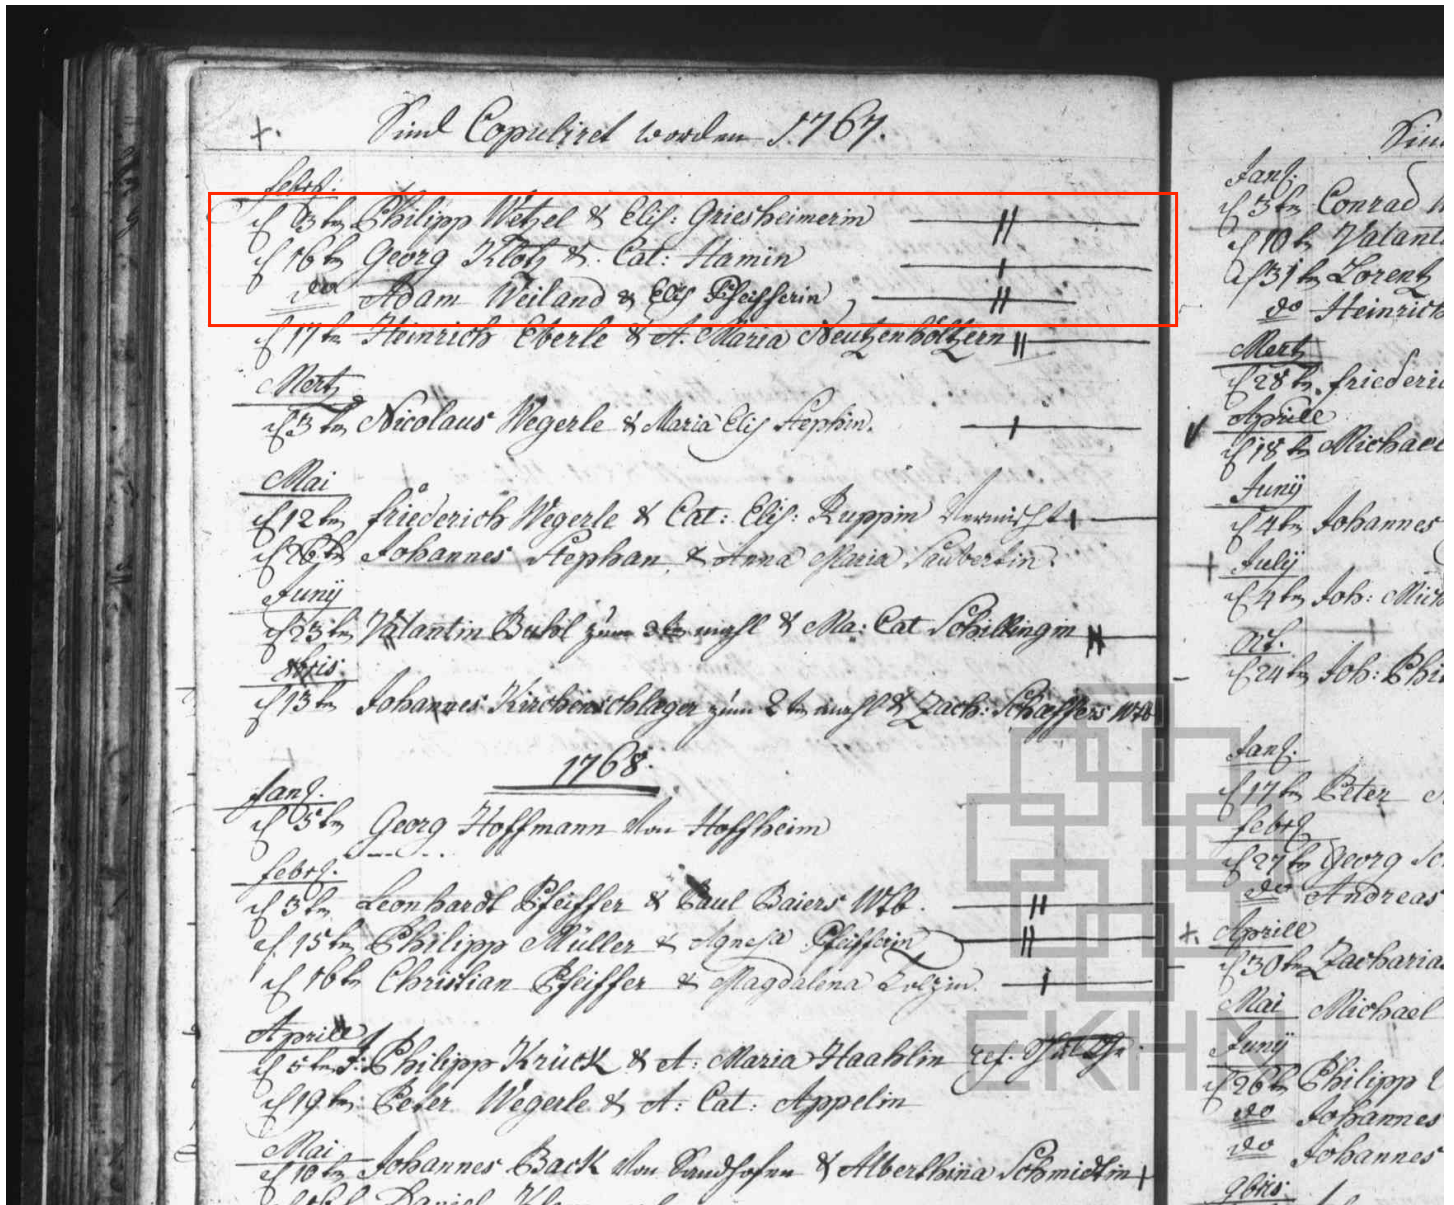 +. Sind Copuliret worden 1767.
febr:
d 3tn Philipp Wetzel & Elis: Griesheimerin
d 16tn Georg Klotz & Cat: Hamin
do Adam Weiland & Elis Pfeifferin
d 17tn Heinrich Eberle & A. Maria Neutzenhöltzern
Mertz
d 3tn Nicolaus Wegerle & Maria Elis Stephin.
Mai
d 12tn friederich Wegerle & Cat: Elis: Ruppin
d 26tn Johannes Stephan & Anna Maria
Juny
d 23tn Valantin Buhl zum mahl & Ma: Cat Schillingin
d 13tn Johannes Kirchenschlager zum 2tn mahl & Zach: Schæffers Wtb
1768.
Janr.
d 5tn Georg Hoffmann von Hoffheim
febr.
d 3tn Leonhardt Pfeiffer & Paul Baiers Wtb.
d 15tn Philipp Müller & Agnesa Pfeifferin
d 16tn Christian Pfeiffer & Magdalena
Aprill
d 5tn J. Philipp Krück & A. Maria Haahlin ref.
d 19tn Peter Wegerle & A: Cat: Appelin
Mai
d 10tn Johannes Back von Sandhofen & Alberthina Schmidtin
Daniel
Janr:
d 3tn Conrad
d 10tn Valant
d 31tn Lorentz
do Heinrich
Mertz
d 28tn friederi
Aprill
d 18tn Michael
Juny
d 4tn Johannes
July
d 4tn Joh: Mich
Oct.
d 24tn Joh: Phi
Janr.
d 17tn Peter
febr
d 27tn Georg
do Andreas
+. Aprill
d 30tn Zacharias
Mai Michael
Juny
d 26tn Philipp
do Johannes
do Johannes
9bris
EKHN